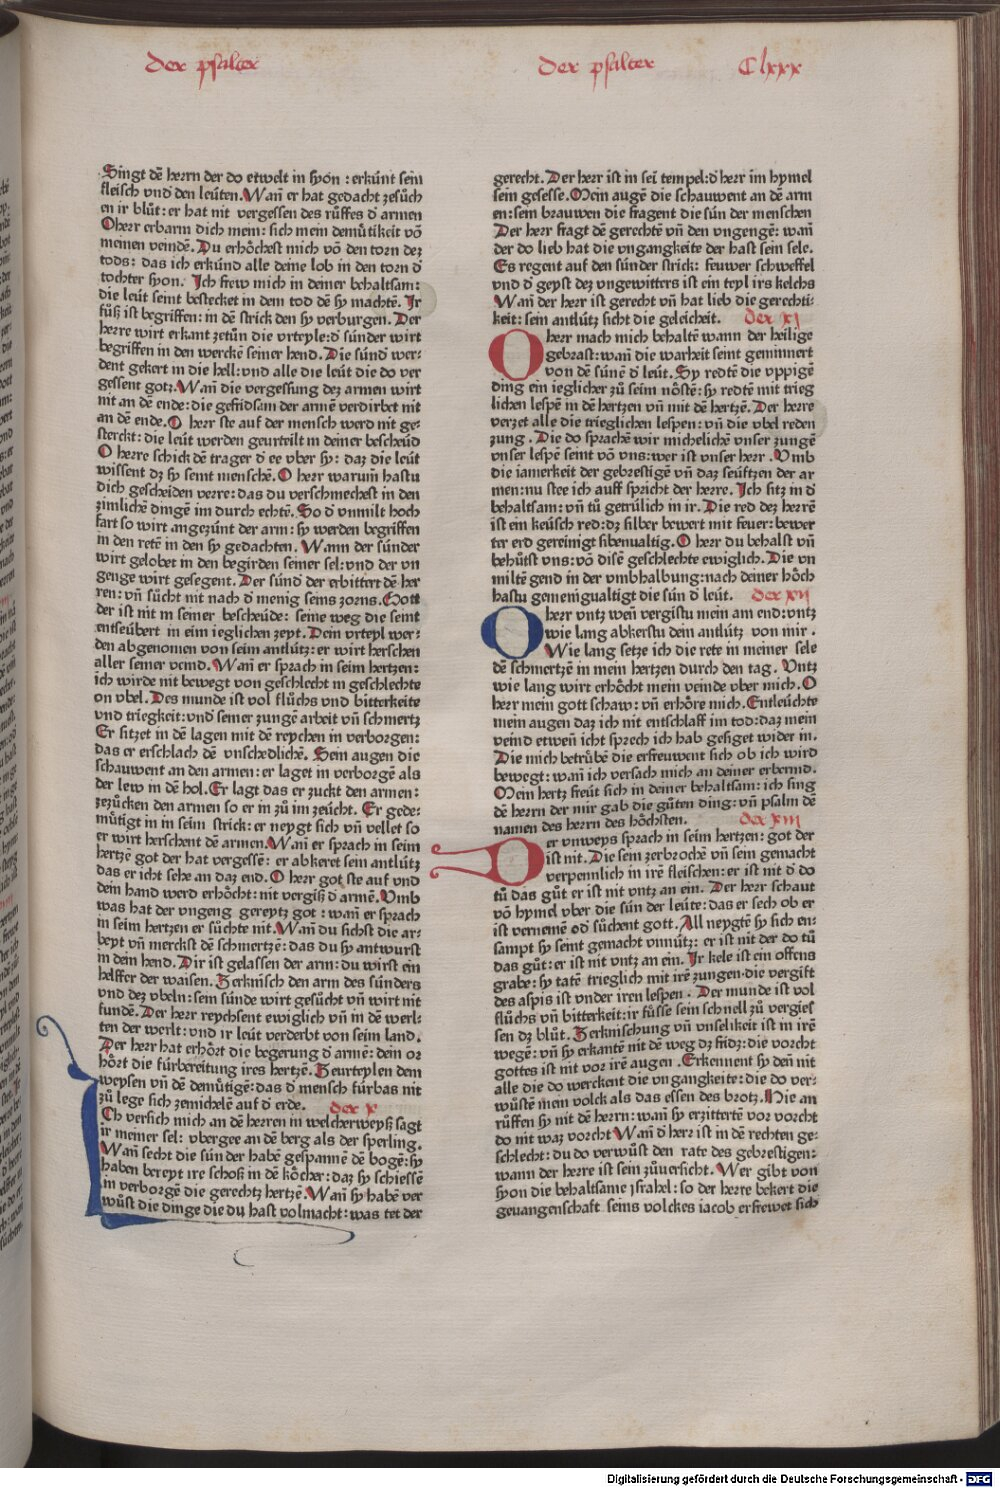 der psalter
der psalter Clxxx
Singt dē herrn der do etwelt in syon : erkúnt sein
fleisch vnd den leúten. Wañ er hat gedacht zesúch
en ir blůt: er hat nit vergessen des růffes d̄ armen
O herr erbarm dich mein: sich mein demútikeit vō
meinen veindē. Du erhőchest mich vō den torn dez
tods: das ich erkúnd alle deine lob in den torn d̄
tochter syon. Ich frew mich in deiner behaltsam:
die leút seint bestecket in dem tod dē sy machtē. Ir
fůß ist begriffen: in dē strick den sy verburgen. Der
herre wirt erkant zetůn die vrteyle: d̄ súnder wirt
begriffen in den werckē seiner hend. Die súnd wer-
dent gekert in die hell: vnd alle die leút die do ver
gessent gotz. Wañ die vergessung dez armen wirt
nit an dē ende: die gefridsam der armē verdirbet nit
an dē ende. O herr ste auf der mensch werd nit ge-
sterckt: die leút werden geurteilt in deiner bescheúd
O herre schick dē trager d̄ ee vber sy: daz die leút
wissent dz sy seint menschē. O herr warum̄ hastu
dich gescheiden verre: das du verschmechest in den
zimlichē dingē im durch echtē. So d̄ vnmilt hoch
fart so wirt angezúnt der arm: sy werden begriffen
in den retē in den sy gedachten. Wann der súnder
wirt gelobet in den begirden seiner sel: vnd der vn
genge wirt gesegent. Der súnd̄ der erbittert dē her
ren: vñ sůcht nit nach d̄ menig seins zorns. Gott
der ist nit in seiner bescheúde: seine weg die seint
entseúbert in eim ieglichen zeyt. Dein vrteyl wer-
den abgenomen von seim antlútz: er wirt herschen
aller seiner veind. Wañ er sprach in seim hertzen:
ich wirde nit bewegt von geschlecht in geschlechte
on vbel. Des munde ist vol flúchs vnd bitterkeite
vnd triegkeit: vnd̄ seiner zungē arbeit vñ schmertz
Er sitzet in dē lagen mit dē reychen in verborgen:
das er erschlach dē vnschedlichē. Sein augen die
schauwent an den armen: er laget in verborgē als
der lew in dē hol. Er lagt das er zuckt den armen:
zezúcken den armen so er in zů im zeúcht. Er gede-
můtigt in in seim strick: er neygt sich vñ vellet so
er wirt herschent dē armen. Wañ er sprach in seim
hertzē got der hat vergessē: er abkeret sein antlútz
das er icht sehe an daz end. O herr got ste auf vnd
dein hand werd erhőcht: nit vergiß d̄ armē. Vmb
was hat der vngeng gereytz got: wañ er sprach
in seim hertzen er súchte nit. Wañ du sichst die ar-
beyt vñ merckst dē schmertzē: das du sy antwurst
in dein hend. Dir ist gelassen der arm: du wirst ein
helffer der waisen. Zerknisch den arm des súnders
vnd dez vbeln: sein súnde wirt gesůcht vñ wirt nit
funden. Der herr reychsent ewiglich vñ in dē werl-
ten der werlt: vnd ir leút verderbt von seim land.
Der herr hat erhőrt die begerung d̄ armē: dein or
hőrt die fúrbereitung ires hertzē. Zeurteylen dem
weysen vñ dē demútigē: das d̄ mensch fúrbas nit
zů lege sich zemichelē auf d̄ erde. der x
Ich versich mich an dē herren in welcherweyß sagt
ir meiner sel: vbergee an dē berg als der sperling.
Wañ secht die súnder habē gespannē dē bogē: sy
haben bereyt ire schoß in dē kőcher: daz sy schiessē
in verborgē die gerechtz hertzē. Wañ sy habē ver
wúst die dinge die du hast volmacht: was tet der
gerecht. Der herr ist in sei tempel: d̄ herr im hymel
sein gesesse. Mein augē die schauwent an dē arm
en: sein brauwen die fragent die sún der menschen
Der herr fragt dē gerechtē vñ den vngengē: wañ
der do lieb hat die vngangkeite der hast sein sele.
Es regent auf den súnder strick: feuwer schweffel
vnd d̄ geyst dez vngewitters ist ein teyl irs kelchs
Wañ der herr ist gerecht vñ hat lieb die gerechti-
keit: sein antlútz sicht die geleicheit. der xi
O herr mach mich behaltē wann der heilige
gebrast: wañ die warheit seint geminnert
von dē súnē d̄ leút. Sy redtē die vppigē
ding ein ieglicher zů seim nőstē: sy redtē mit trieg
lichen lespē in dē hertzen vñ mit dē hertzē. Der herre
verzet alle die trieglichen lespen: vñ die vbel reden
zung. Die do sprachē wir michelichē vnser zungē
vnser lespē seint vō vns: wer ist vnser herr. Vmb
die iamerkeit der gebrestigē vñ daz seúftzen der ar
men: nu stee ich auff spricht der herre. Ich sitz in d̄
behaltsam: vñ tů getrúlich in ir. Die red dez herrē
ist ein keúsch red: dz silber bewert mit feuer: bewer
ter erd gereinigt sibenualtig. O herr du behalst vñ
behútst vns: vō disē geschlechte ewiglich. Die vn
miltē gend in der vmbhalbung: nach deiner hőch
hastu gemenigualtigt die sún d̄ leút. der xii
O herr vntz wen̄ vergistu mein am end: vntz
wie lang abkerstu dein antlútz von mir.
Wie lang setze ich die rete in meiner sele
dē schmertzē in mein hertzen durch den tag. Vntz
wie lang wirt erhőcht mein veinde vber mich. O
herr mein gott schaw: vñ erhőre mich. Entleúchte
mein augen daz ich nit entschlaff im tod: daz mein
veind etwen̄ icht sprech ich hab gesiget wider in.
Die mich betrúbē die erfreuwent sich ob ich wird
bewegt: wañ ich versach mich an deiner erbermd.
Mein hertz freút sich in deiner behaltsam: ich sing
dē herrn der mir gab die gůten ding: vñ psalm dē
namen des herrn des hőchsten. der xiii
Der vnweys sprach in seim hertzen: got der
ist nit. Die sein zerbrochē vñ sein gemacht
verpennlich in irē fleischen: er ist nit d̄ do
tů das gůt er ist nit vntz an ein. Der herr schaut
vō hymel vber die sún der leúte: das er sech ob er
ist vernemē od̄ sůchent gott. All neygtē sy sich en-
sampt sy seint gemacht vnnútz: er ist nit der do tů
das gůt: er ist nit vntz an ein. Ir kele ist ein offens
grabe: sy tatē trieglich mit irē zungen. die vergift
des aspis ist vnder iren lespen. Der munde ist vol
flůchs vñ bitterkeit: ir fůsse sein schnell zů vergies
sen dz blůt. Zerknischung vñ vnselikeit ist in irē
wegē: vñ sy erkantē nit dē weg dz fridz: die vorcht
gottes ist nit vor irē augen. Erkennent sy deñ nit
alle die do werckent die vngangkeite: die do ver-
wústē mein volck als das essen des brotz. Hie an
růffen sy nit dē herrn: wañ sy erzittertē vor vorcht
do nit waz vorcht Wañ d̄ herr ist in dē rechten ge-
schlecht: du do verwúst den rate des gebrestigen:
wann der herre ist sein zůuersicht. Wer gibt von
syon die behaltsame jsrahel: so der herre bekert die
geuangenschaft seins volckes iacob erfrewet sich
Digitalisierung gefördert durch die Deutsche Forschungsgemeinschaft - DFG